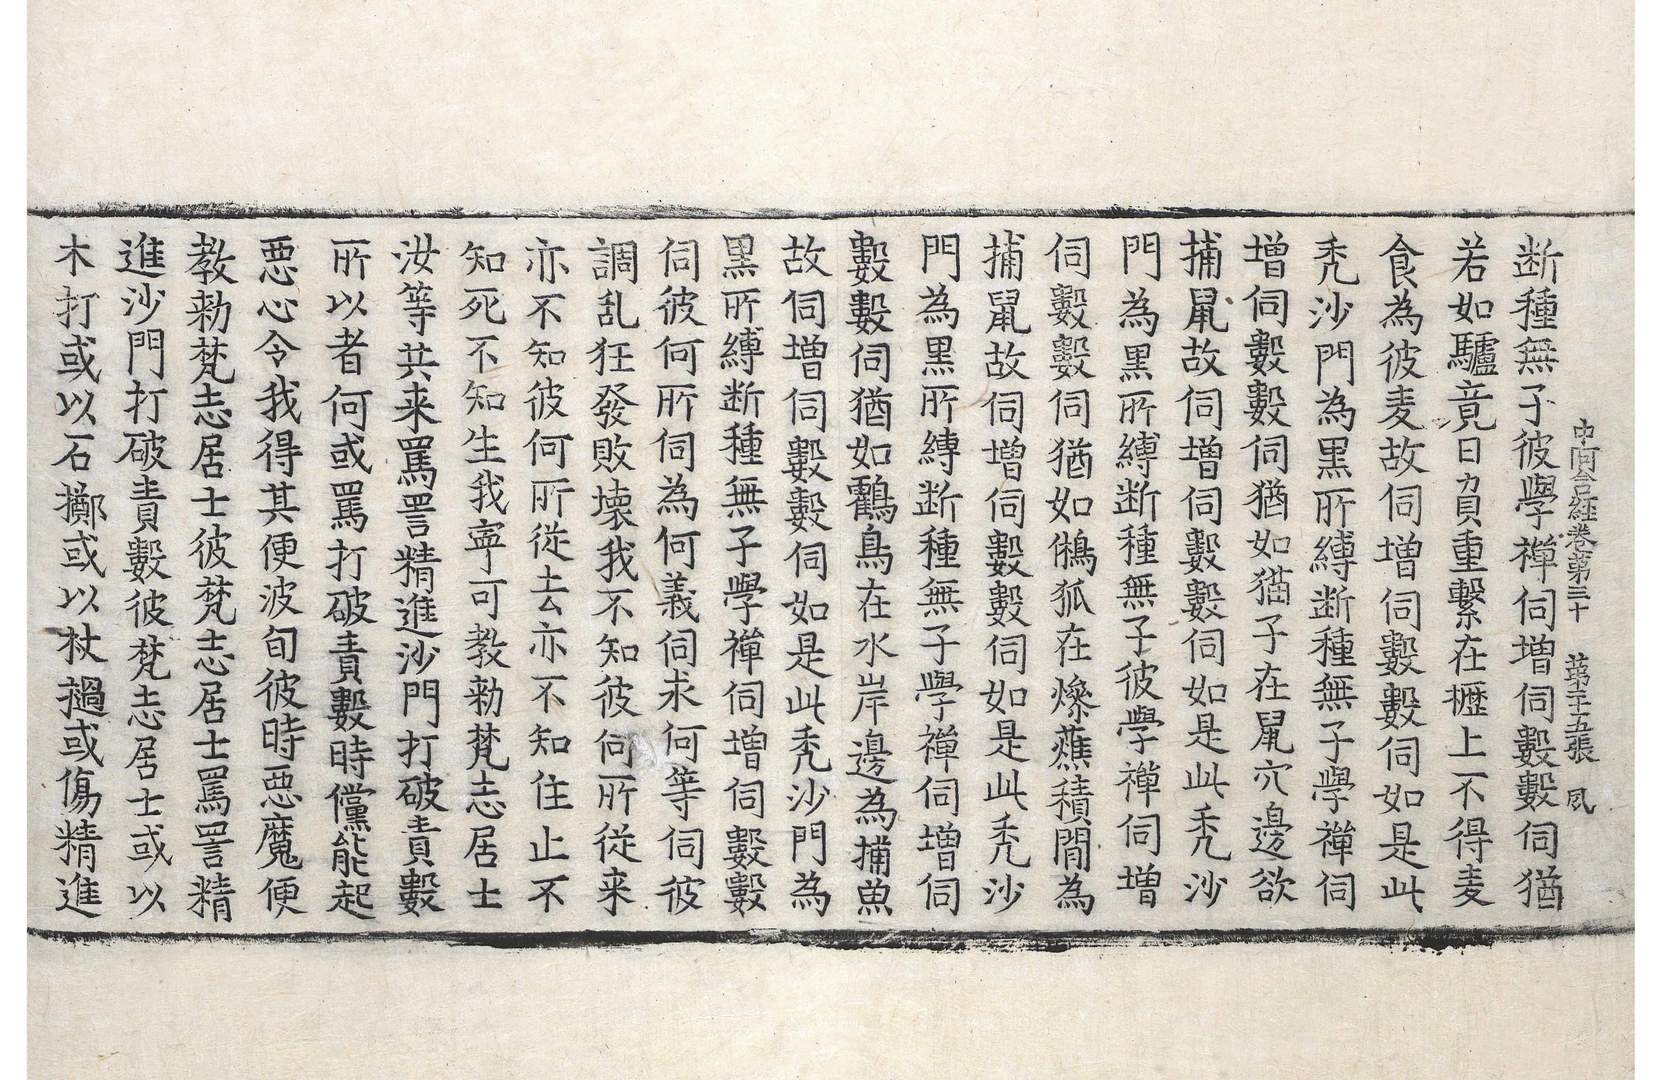 中阿含経卷第三十　第二十五張　夙
断種無子彼學禪伺増伺數數伺猶
若如驢竟日負重繫在櫪上不得麦
食為彼麦故伺増伺數數伺如是此
禿沙門為黒所縛断種無子學禪伺
増伺數數伺猶如猫子在鼠穴邊欲
捕鼠故伺増伺數數伺如是此禿沙
門為黒所縛断種無子彼學禪伺増
伺數數伺猶如鵂狐在燥䕸積間為
捕鼠故伺増伺數數伺如是此禿沙
門為黒所縛断種無子學禪伺増伺
數數伺猶如鸖鳥在水岸邊為捕魚
故伺増伺數數伺如是此禿沙門為
黒所縛断種無子學禪伺増伺數數
伺彼何所伺為何義伺求何等伺彼
調乱狂發敗壊我不知彼何所従来
亦不知彼何所従去亦不知住止不
知死不知生我寧可教勑梵志居士
汝等共来罵詈精進沙門打破責數
所以者何或罵打破責數時儻能起
悪心令我得其便波旬彼時悪魔便
教勑梵志居士彼梵志居士罵詈精
進沙門打破責數彼梵志居士或以
木打或以石擲或以杖撾或傷精進